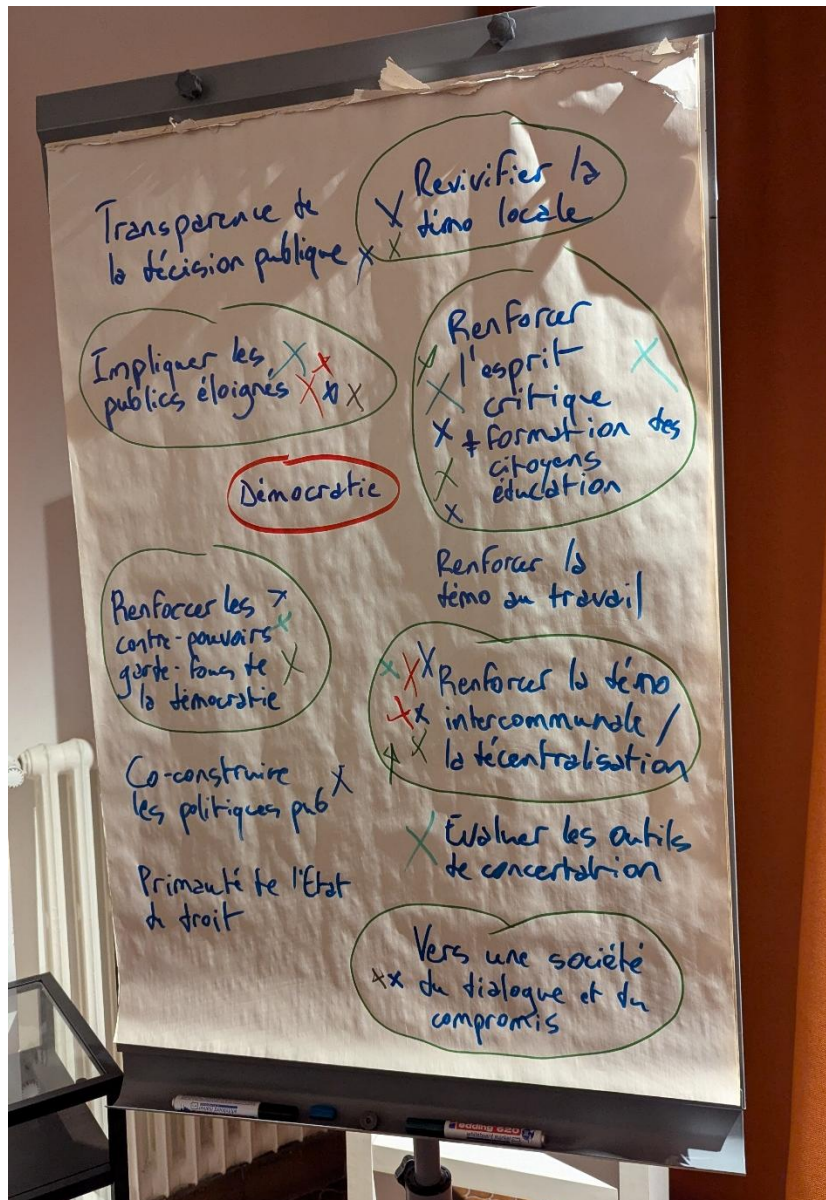 Transparence de
la décision publique
Revivifier la
démo locale
Impliquer les
publics éloignés
Renforcer
l'esprit
critique
+ formation des
citoyens
éducation
Démocratie
Renforcer la
démo au travail
Renforcer les
contre-pouvoirs
garde-fous de
la démocratie
Renforcer la démo
intercommunale /
la décentralisation
Co-construire
les politiques pub
Evaluer les outils
de concertation
Primauté de l'Etat
de droit
Vers une société
du dialogue et du
compromis
edding 620